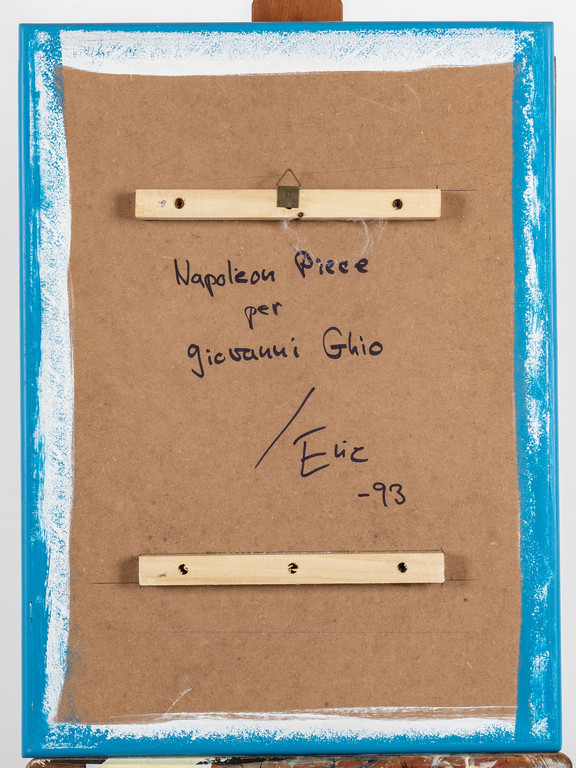 Napoleon Piece
per
giovanni Ghio
/Eric
-93